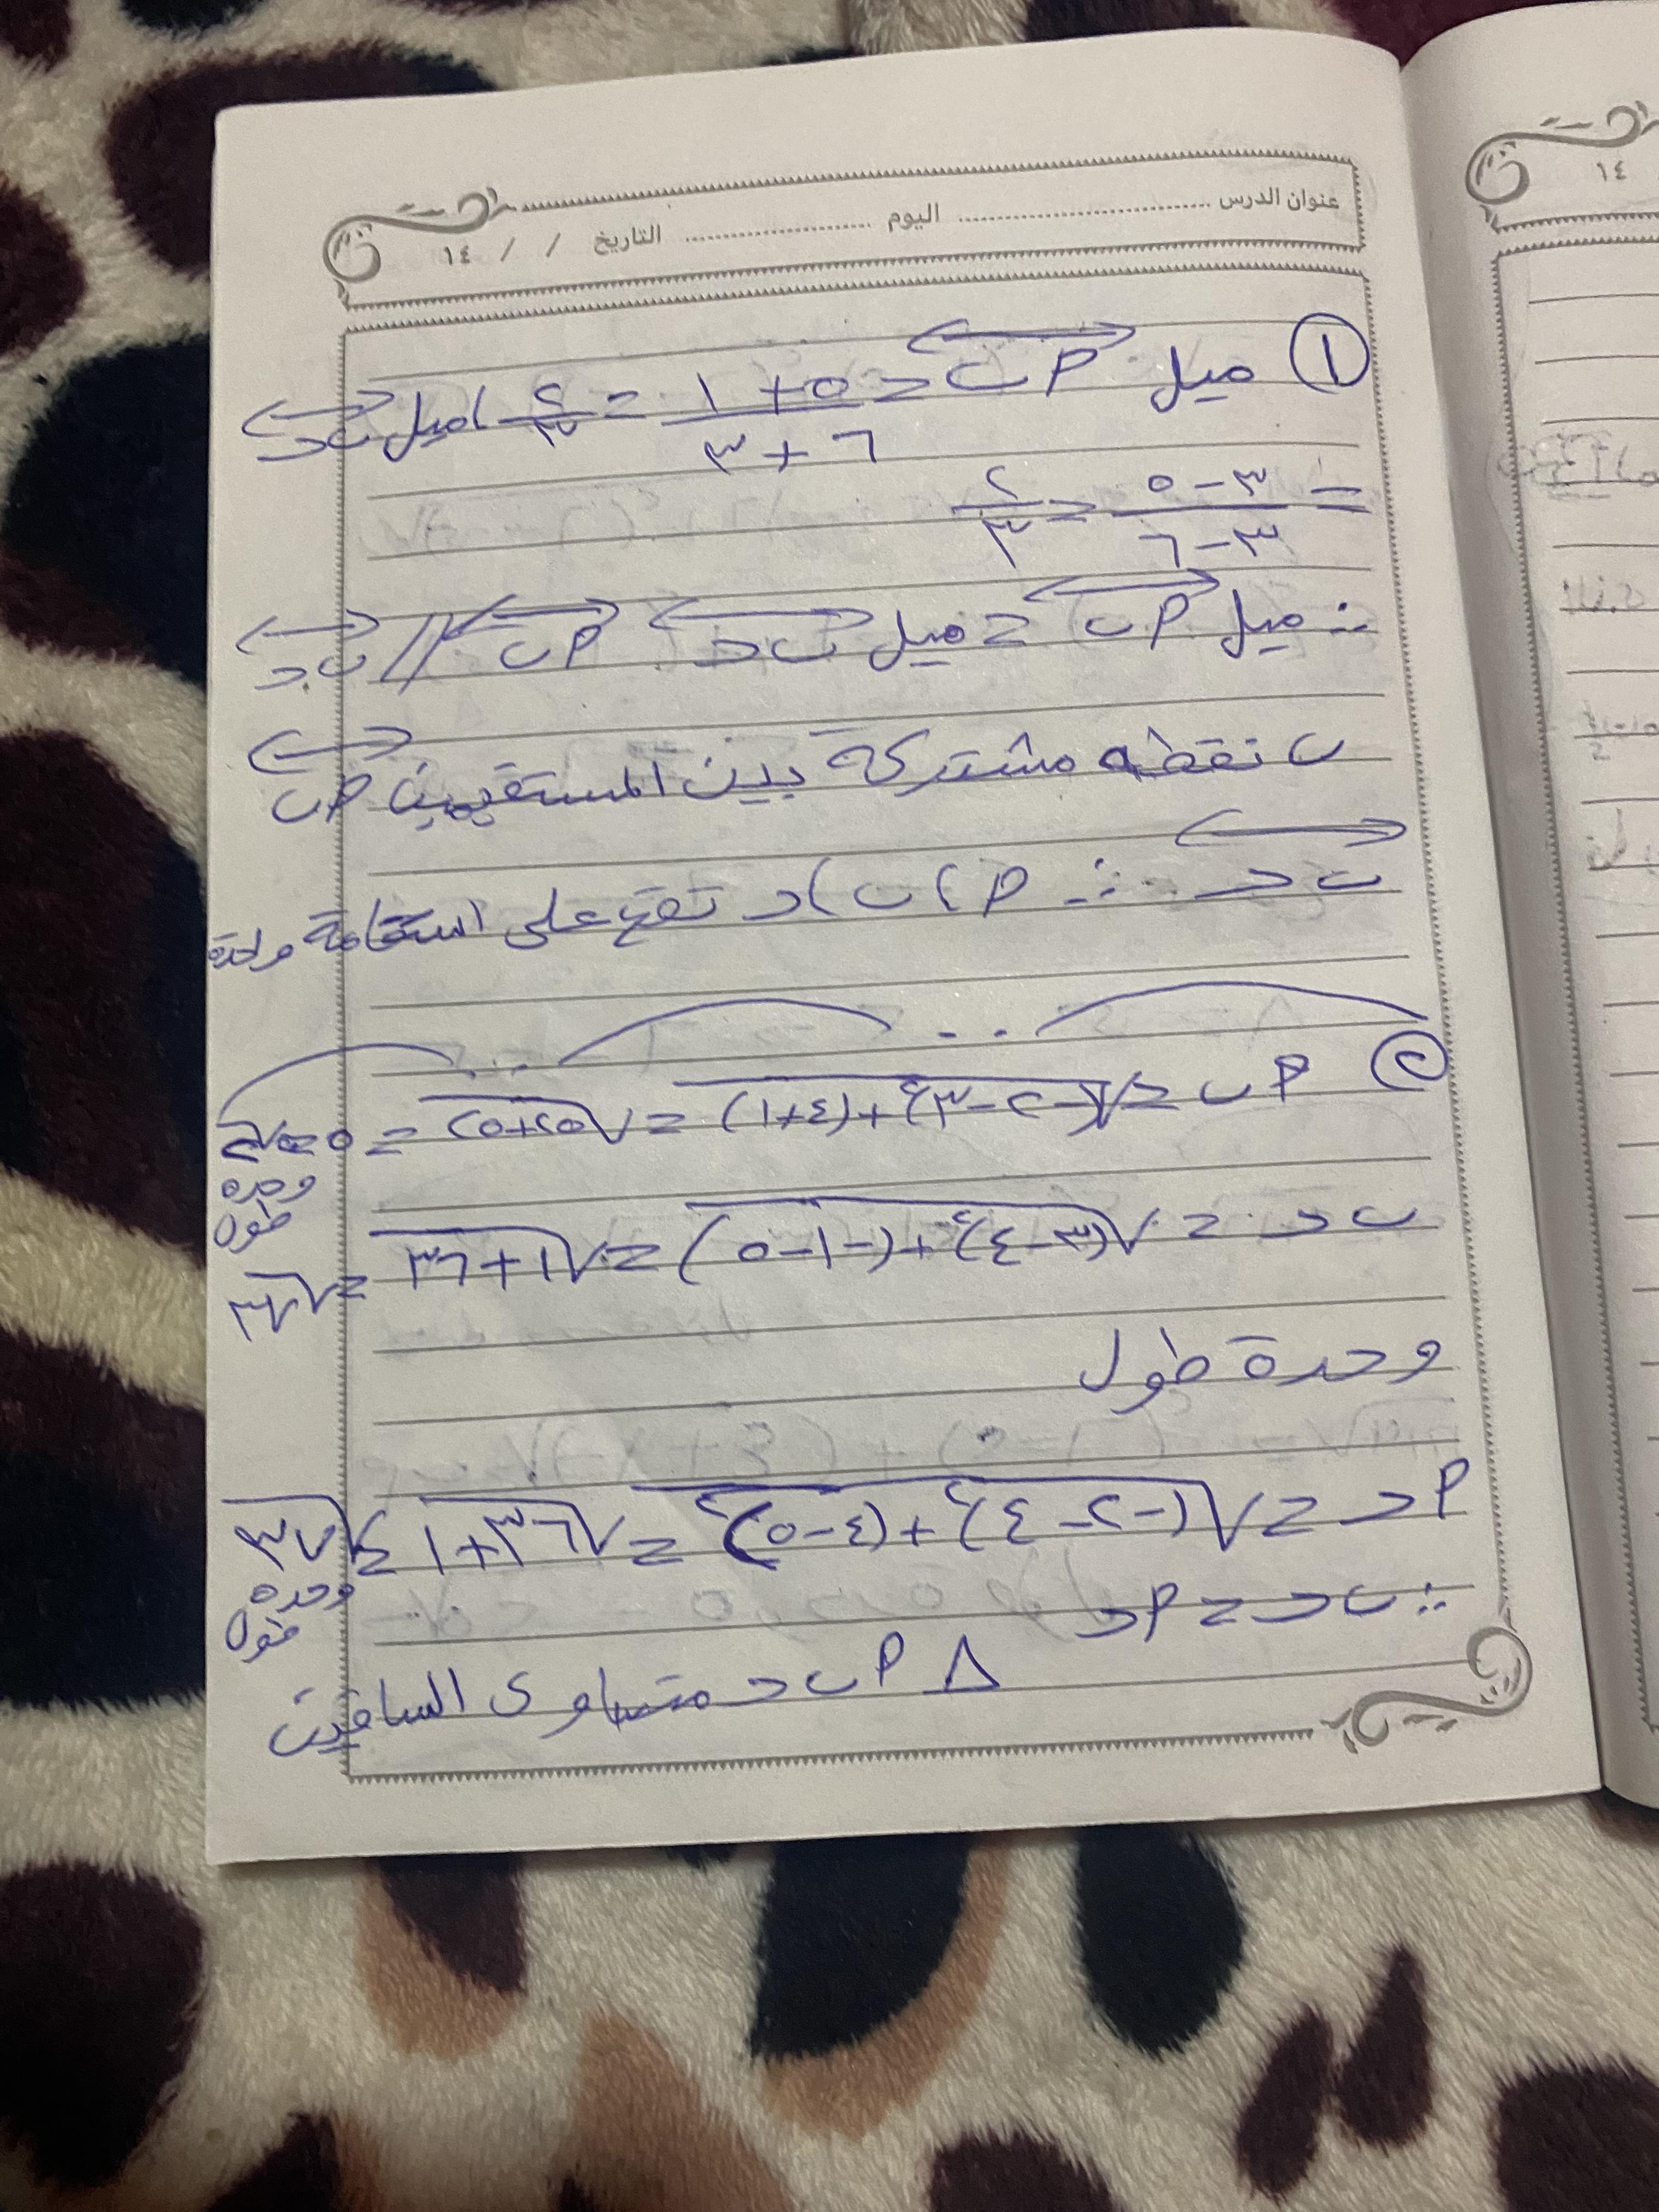 عنوان الدرس ........................ اليوم ................ التاريخ / / ١٤
١٤
① ميل أب = ٥+١ / ٦+٣ = ٢/٣ ، ميل ب حـ
= ٣-٥ / ٣-٦ = ٢/٣
∴ ميل أب = ميل ب حـ أب // ب حـ
ب نقطه مشتركة بين المستقيمين أب
ب حـ ∴ أ ، ب ، حـ تقع على استقامة واحدة
② أب = √(-٢-٣)٢+(٤+١) = √٢٥+٢٥ = ٥√٢
وحده
طول
ب حـ = √(٣-٤)٢+(-١-٥) = √١+٣٦ = √٣٧
وحدة طول
أحـ = √(-٢-٤)٢+(٤-٥)٢ = √٣٦+١ = √٣٧
وحده
طول
∴ ب حـ = أحـ
Δ أ ب حـ متساوى الساقين